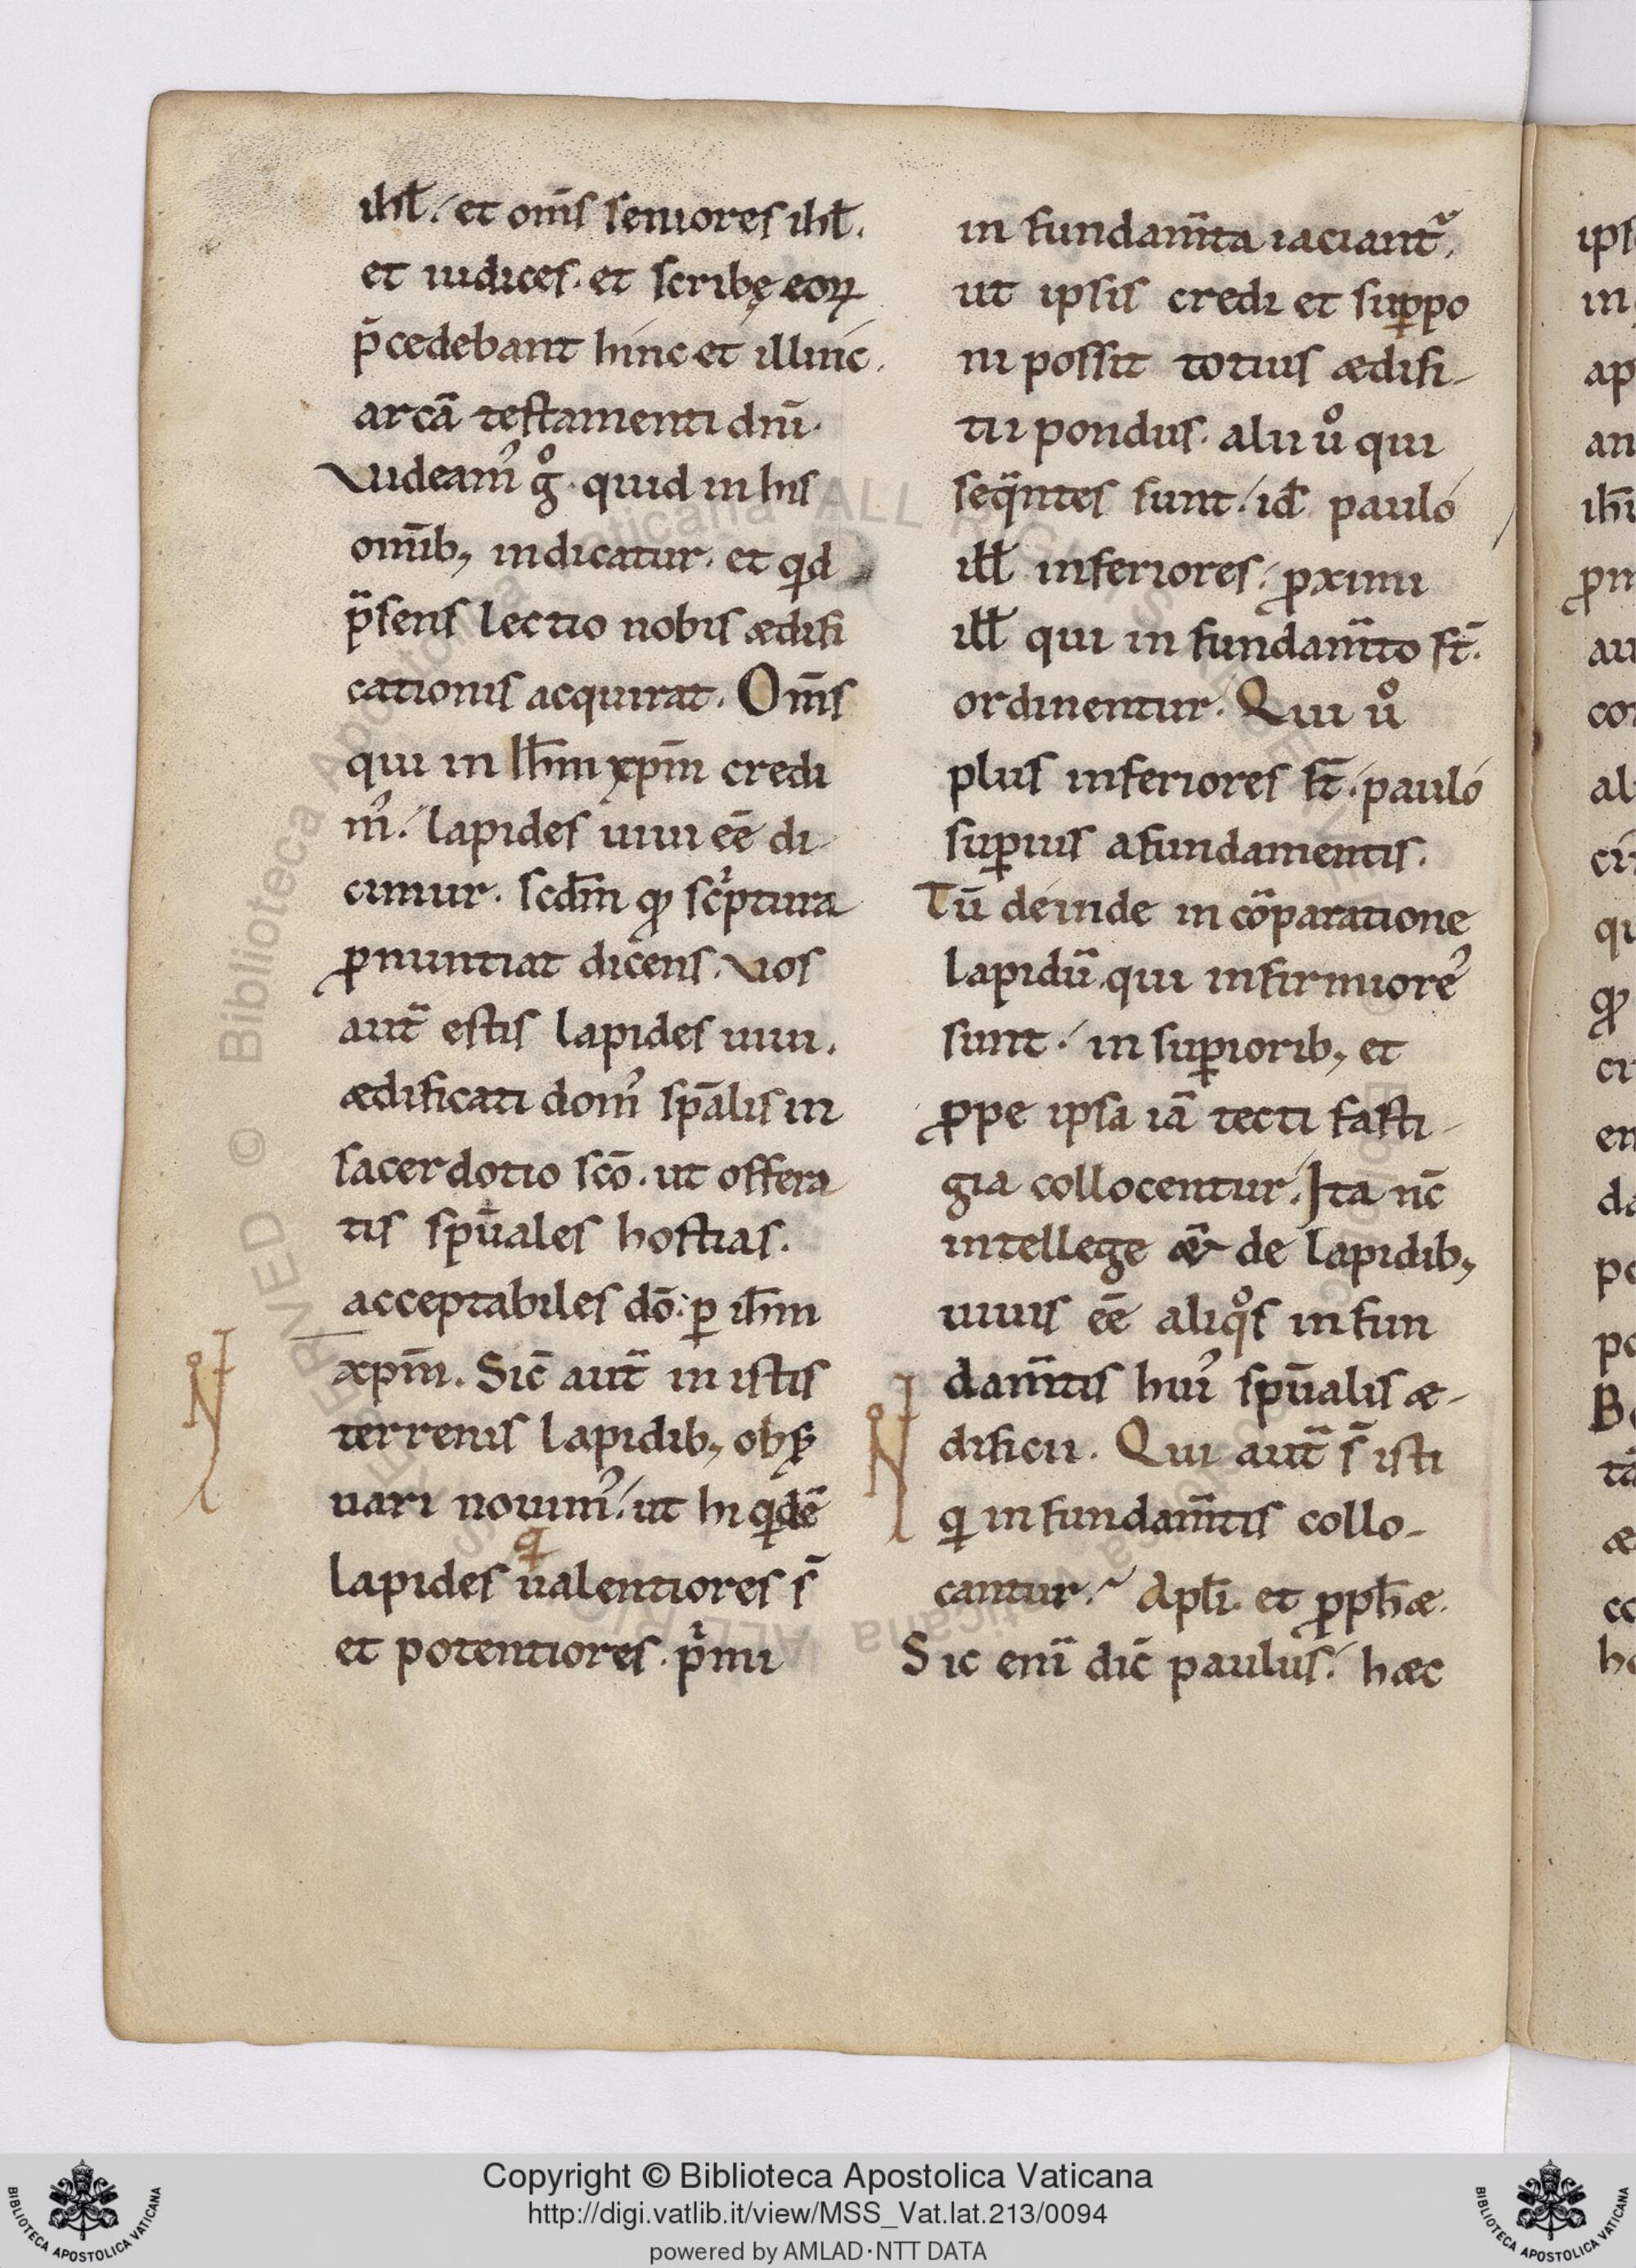 ihł. et om̄s seniores ihł.
et iudices. et scribę eoꝝ
p̄cedebant hinc et illinc.
arcā testamenti dn̄i.
Videam᾽ gͦ. quid in his
om̄ib; indicatur. et qͥd
p̄sens lectio nobis ædifi
cationis acquirat. Om̄s
qui in Ihm̄ xp̄m credi
m᾽. lapides uiui ēē di-
cimur. scd̄m qꝫ scͥptura
ꝓnuntiat dicens. Vos
aut̄ estis lapides uiui.
ædificati dom᾽ sp̄alis in
sacerdotio sc̄o. ut offera
tis spūales hostias.
acceptabiles dō. ꝑ ihm̄
xp̄m. Sic̄ aut̄ in istis
terrenis lapidib; obẜ
uari nouim᾽. ut hi qͥdē
qͥ
lapides ualentiores s̄
et potentiores. pͥmi
in fundam̄ta iaciant᷑.
ut ipsis credi et suꝑpo
ni possit totius ædifi-
tii pondus. alii uͦ qui
seqͣntes sunt. id̄ paulo
ill̄ inferiores. ꝓximi
ill̄ qui in fundam̄to st̄.
ordinentur. Qui uͦ
plus inferiores st̄. paulo
suꝑius a fundamentis.
Tū deinde in cōparatione
lapidū. qui infirmiore᾽
sunt. in suꝑiorib; et
ꝓpe ipsa iā tecti fasti-
gia collocentur. Ita nc̄
intellege ǣ de lapidib;
uiuis ēē aliqͦs in fun
dam̄tis hui᾽ spūalis æ-
dificii. Qui aut̄ s̄ isti
qͥ in fundam̄tis collo-
cantur. Apl̄i. et ꝓph̄æ.
Sic enī dic̄ paulus. hæc
Copyright © Biblioteca Apostolica Vaticana
http://digi.vatlib.it/view/MSS_Vat.lat.213/0094
powered by AMLAD·NTT DATA